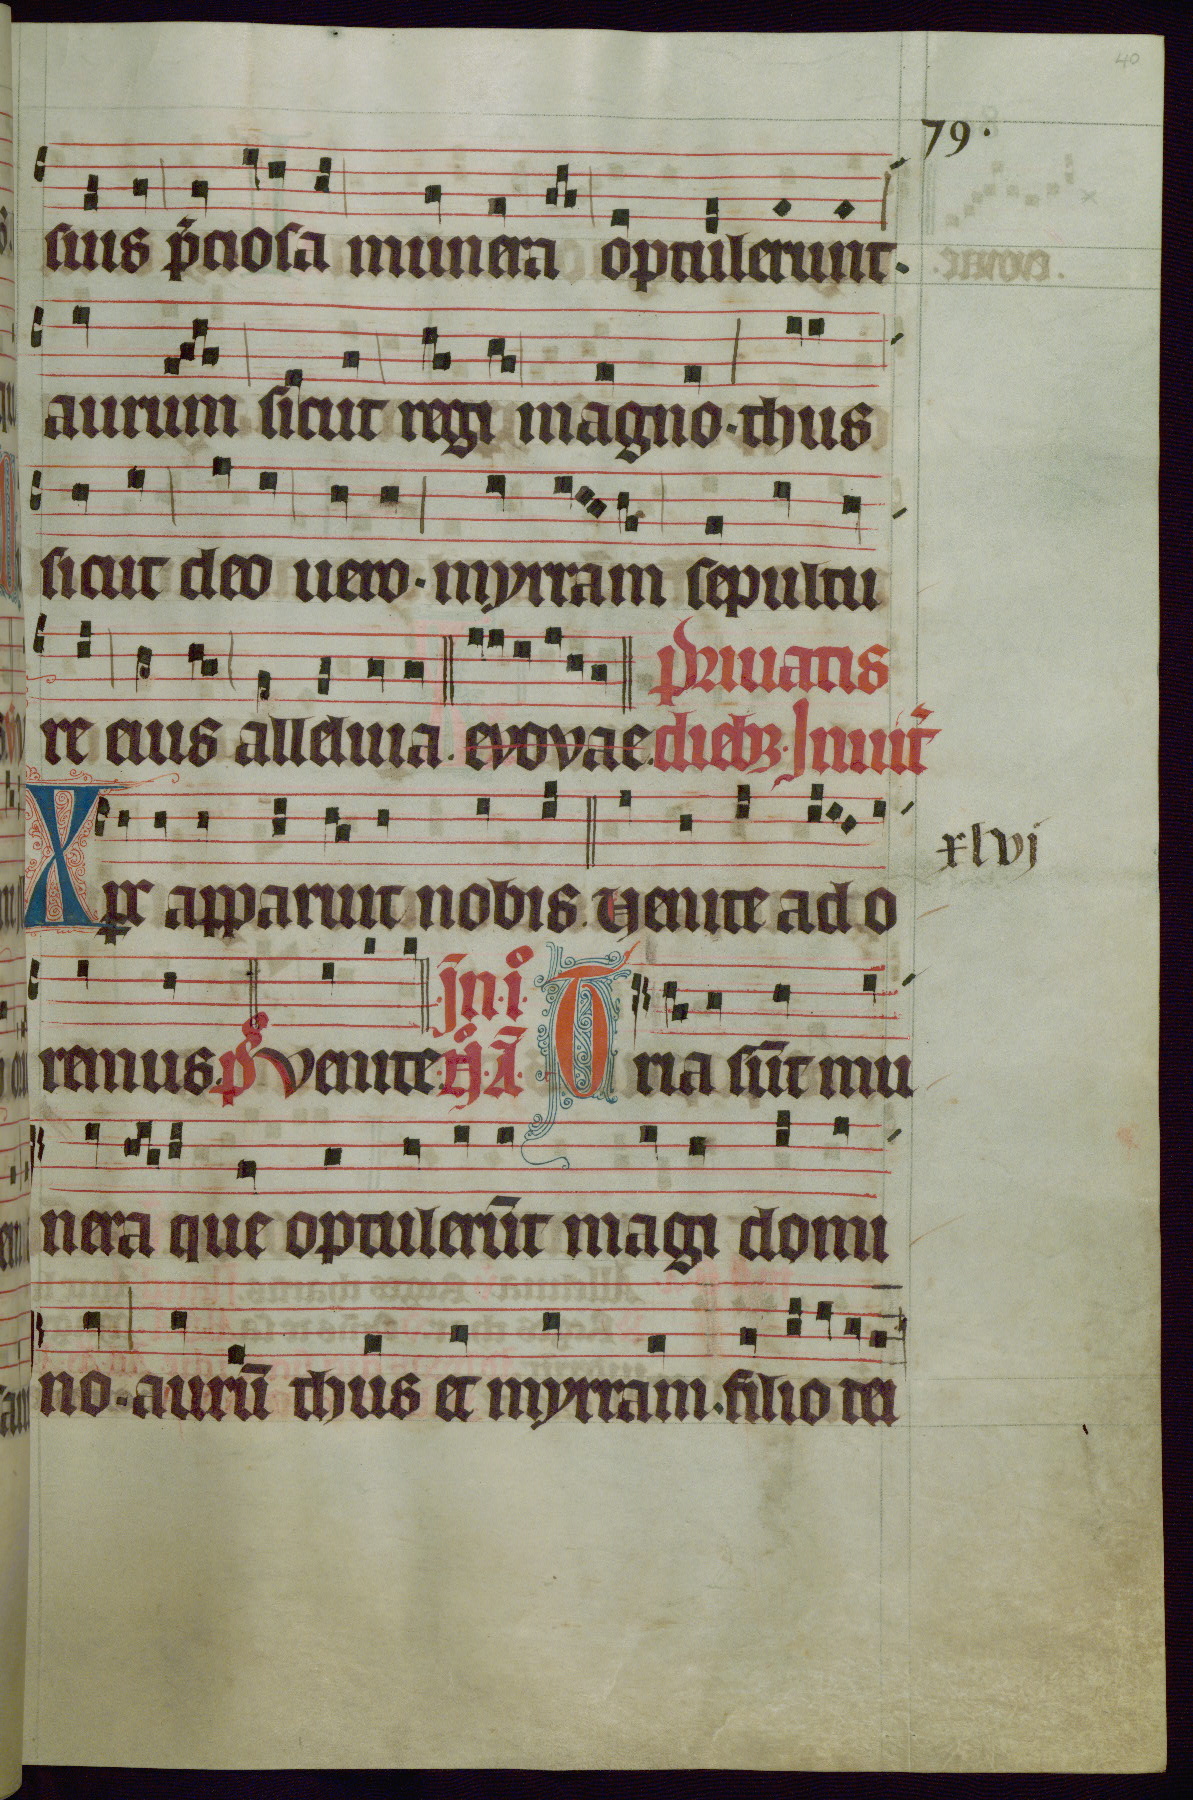 40
79·
suis p̄ciosa munera optulerunt·
aurum sicut regi magno·thus
sicut deo uero·myrram sepultu
priuatis
re eius alleluia. evovae.dieb; Inuit̄
xlvj
Xp̄c apparuit nobis. Uenite ad o
jn·i°
remus. p̄s Venite. A̅
Tria sūt mu
nera que optulerūt magi domi
no·aurū thus et myrram·filio dei